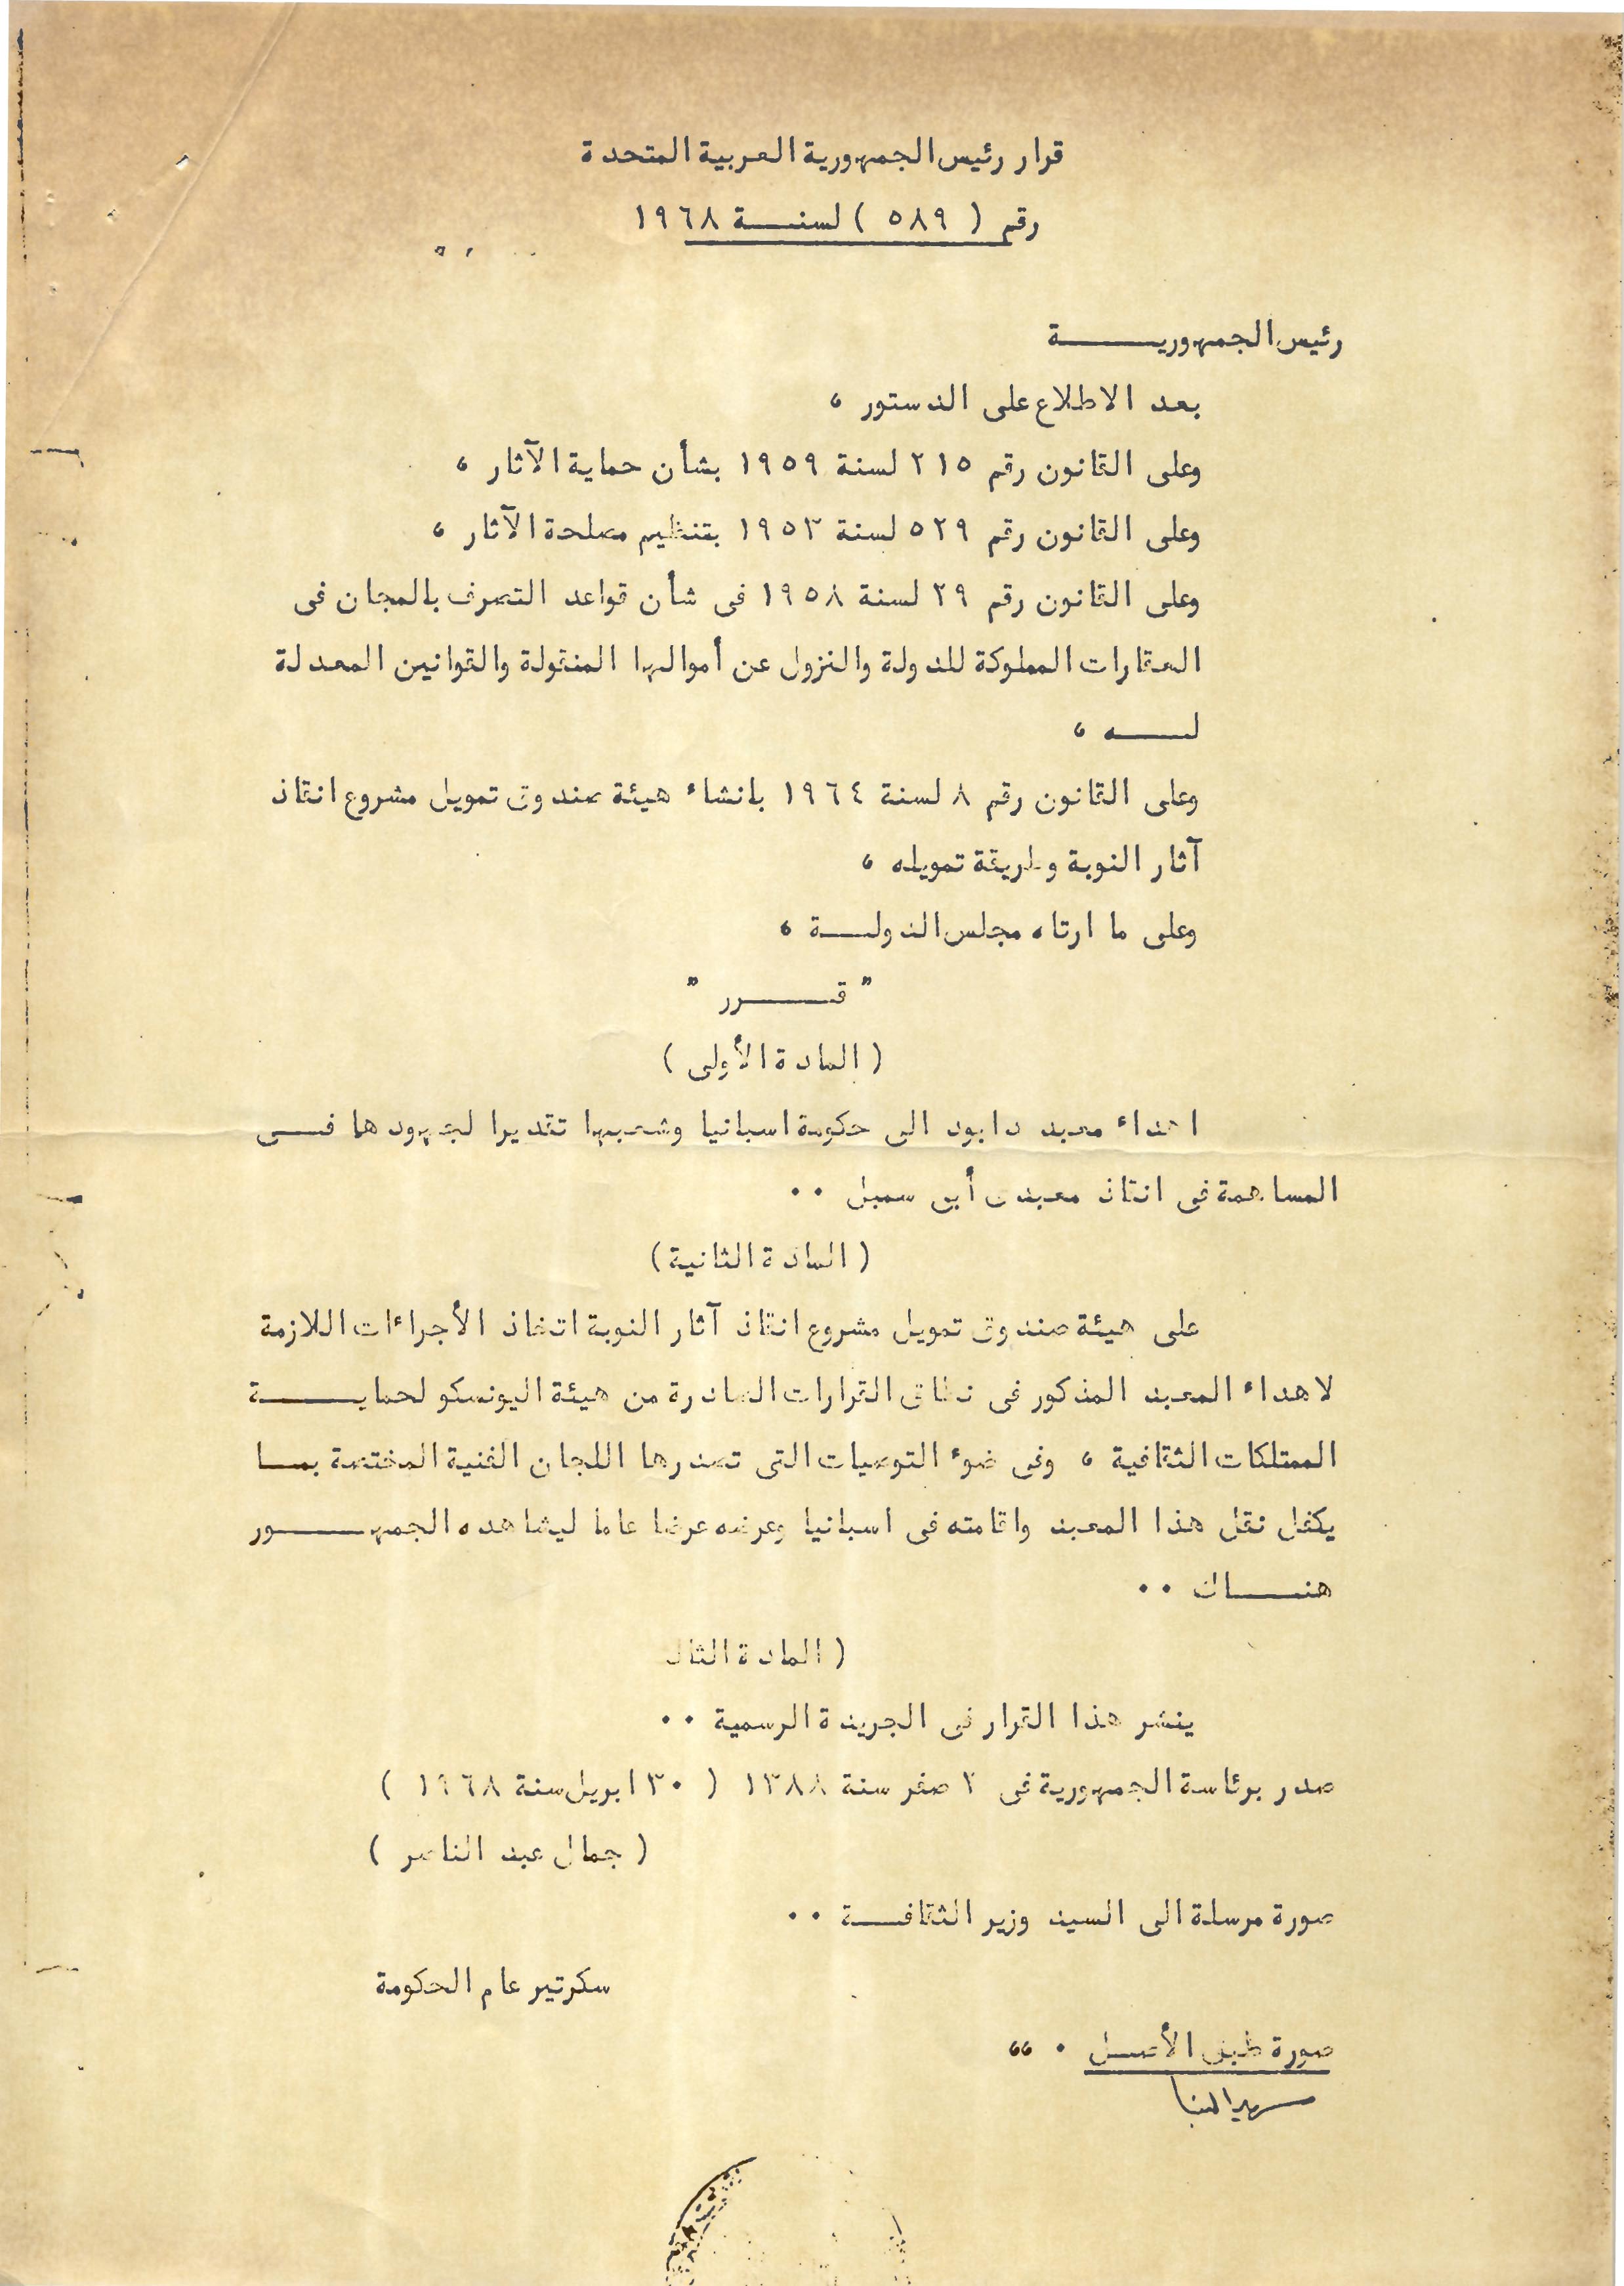 قرار رئيس الجمهورية العربية المتحدة
رقم ( ٥٨٩ ) لسنة ١٩٦٨
رئيس الجمهورية
بعد الاطلاع على الدستور ،
وعلى القانون رقم ٢١٥ لسنة ١٩٥٩ بشأن حماية الآثار ،
وعلى القانون رقم ٥٢٩ لسنة ١٩٥٣ بتنظيم مصلحة الآثار ،
وعلى القانون رقم ٢٩ لسنة ١٩٥٨ فى شأن قواعد التصرف بالمجان فى
العقارات المملوكة للدولة والنزول عن أموالها المنقولة والقوانين المعدلة
له ،
وعلى القانون رقم ٨ لسنة ١٩٦٤ بانشاء هيئة صندوق تمويل مشروع انقاذ
آثار النوبة وطريقة تمويله ،
وعلى ما ارتاه مجلس الدولة ،
" قرر "
( المادة الأولى )
اهداء معبد دابود الى حكومة اسبانيا وشعبها تقديرا لجهودها فى
المساهمة فى انقاذ معبدى أبى سمبل ..
( المادة الثانية )
على هيئة صندوق تمويل مشروع انقاذ آثار النوبة اتخاذ الأجراءات اللازمة
لاهداء المعبد المذكور فى نطاق القرارات الصادرة من هيئة اليونسكو لحماية
الممتلكات الثقافية ، وفى ضوء التوصيات التى تصدرها اللجان الفنية المختصة بما
يكفل نقل هذا المعبد واقامته فى اسبانيا وعرضه عرضا عاما ليشاهده الجمهور
هناك ..
( المادة الثال
ينشر هذا القرار فى الجريدة الرسمية ..
صدر برئاسة الجمهورية فى ٢ صفر سنة ١٣٨٨ ( ٣٠ ابريل سنة ١٩٦٨ )
( جمال عبد الناصر )
صورة مرسلة الى السيد وزير الثقافة ..
سكرتير عام الحكومة
صورة طبق الأصل . ،،